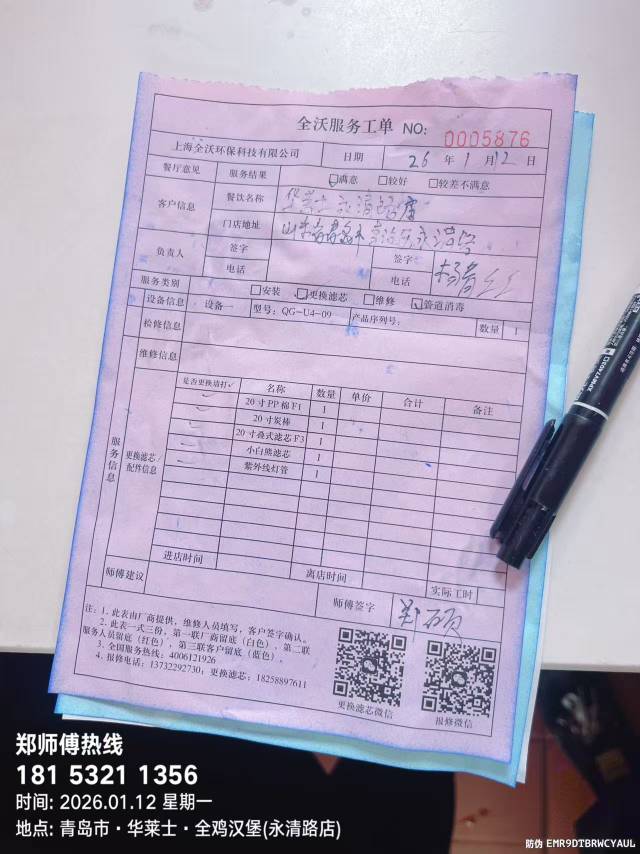 全沃服务工单 NO: 0005876
上海全沃环保科技有限公司 日期 26 年 1 月 12 日
餐厅意见 服务结果 ☑满意 □较好 □较差不满意
客户信息 餐饮名称 华莱士永清路店
门店地址 山东省青岛市 永清路
负责人 签字 签字
电话 电话
服务类别 □安装 ☑更换滤芯 □维修 ☑管道消毒
设备信息 设备一 型号: QG-U4-09 产品序列号: 数量 1
检修信息
维修信息
服务信息 更换滤芯/配件信息
是否更换请打✓ 名称 数量 单价 合计 备注
20寸PP棉F1 1
20寸炭棒 1
20寸叠式滤芯F3 1
小白熊滤芯 1
紫外线灯管 1
进店时间 离店时间 实际工时
师傅建议 师傅签字
注: 1. 此表由厂商提供, 维修人员填写, 客户签字确认。
2. 此表一式三份, 第一联厂商留底(白色), 第二联
服务人员留底(红色), 第三联客户留底(蓝色)。
3. 全国服务热线: 4006121926
4. 报修电话: 13732292730; 更换滤芯: 18258897611
更换滤芯微信 报修微信
郑师傅热线
181 5321 1356
时间: 2026.01.12 星期一
地点: 青岛市·华莱士·全鸡汉堡(永清路店)
防伪 EMR9DTBRWCYAUL